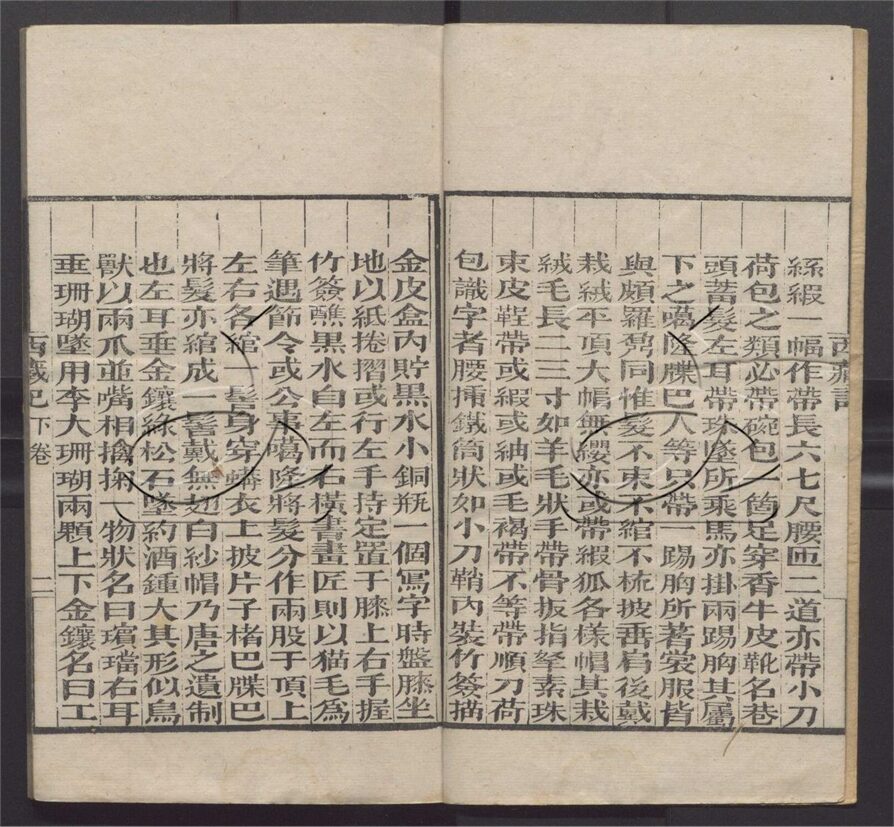 絲緞一幅作帶長六七尺腰匝二道亦帶小刀
荷包之類必帶碗包一箇足穿香牛皮靴名巷
頭蓄髮左耳帶珠墜所乘馬亦掛兩踢胸其屬
下之噶隆牒巴人等只帶一踢胸所著裳服皆
與頗羅鼐同惟髮不束不綰不梳披垂肩後戴
栽絨平頂大帽無纓亦或帶緞狐各樣帽其栽
絨毛長二三寸如羊毛狀手帶骨扳指拏素珠
束皮鞓帶或緞或紬或毛褐帶不等帶順刀荷
包識字者腰揷鐵筒狀如小刀鞘內裝竹簽描
西藏記
金皮盒內貯黑水小銅瓶一個寫字時盤膝坐
地以紙捲摺或行左手持定置于膝上右手握
竹簽蘸黑水自左而右橫書畫匠則以猫毛為
筆遇節令或公事噶隆將髮分作兩股于頂上
左右各綰一髻身穿蟒衣上披片子楮巴牒巴
將髮亦綰成一髻戴無翅白紗帽乃唐之遺制
也左耳垂金鑲綠松石墜約酒鍾大其形似鳥
獸以兩爪並嘴相擒掬一物狀名曰璸璫右耳
垂珊瑚墜用李大珊瑚兩顆上下金鑲名曰工
西藏記 下卷 二